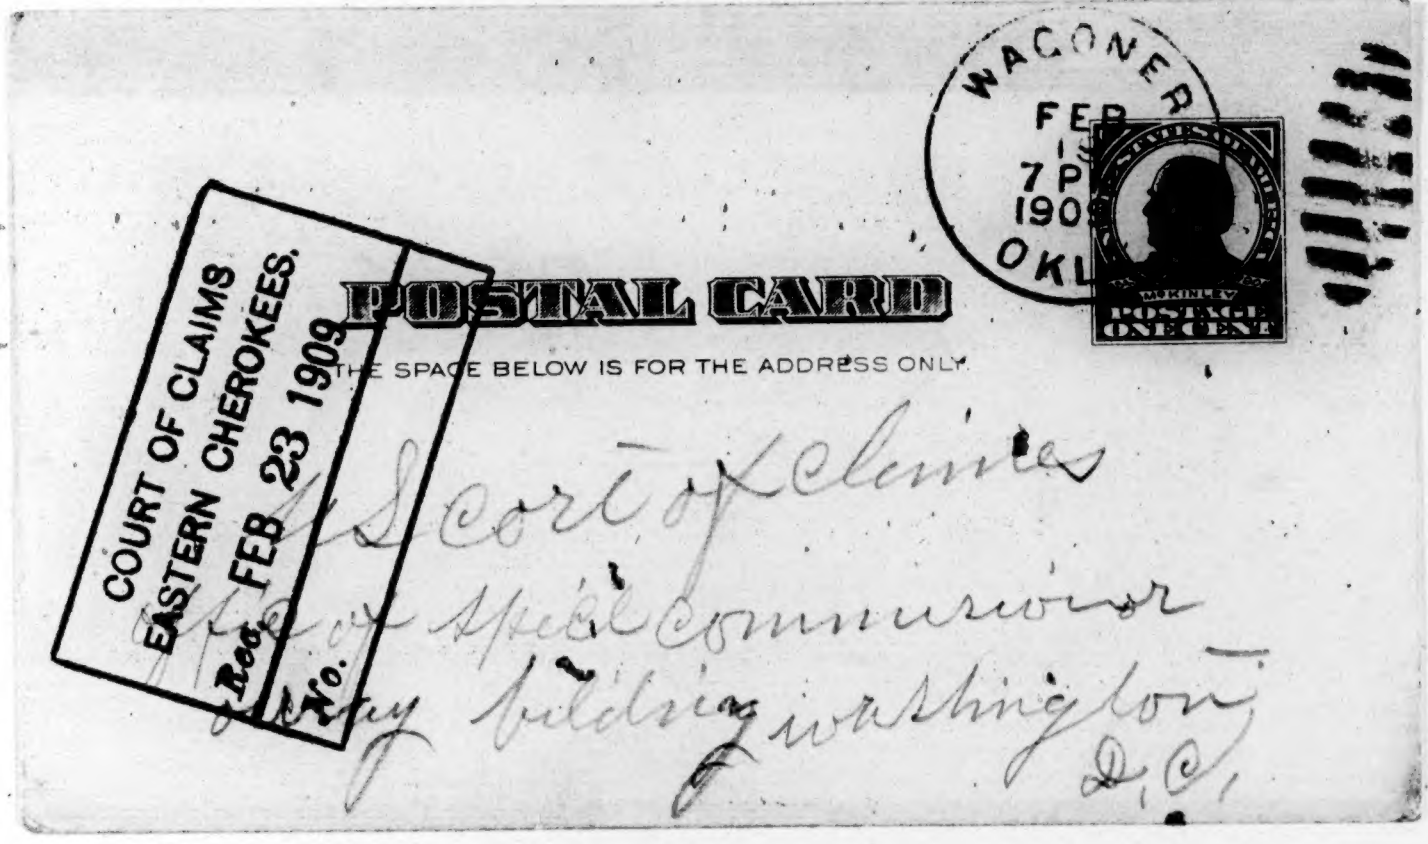 WAGONER
FEB
1
7 P
190
OKL
STATES OF AMERICA
McKINLEY
POSTAGE
ONE CENT
POSTAL CARD
THE SPACE BELOW IS FOR THE ADDRESS ONLY.
COURT OF CLAIMS
EASTERN CHEROKEES.
Rec. FEB 23 1909
No.
U S cort of claimes
of specil commisioner
bildnig washington
D.C.